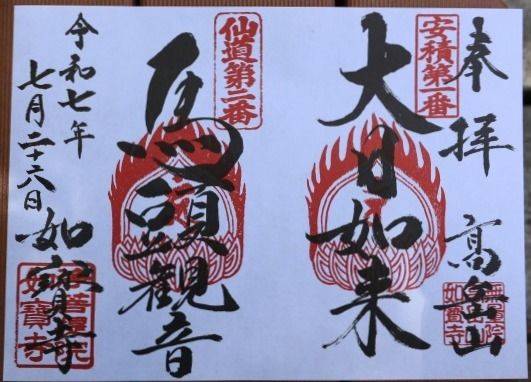 奉拝
高岳山
安積第一番
大日如来
仙道第二番
馬頭観音
令和七年
七月二十六日
如寳寺
如寳寺